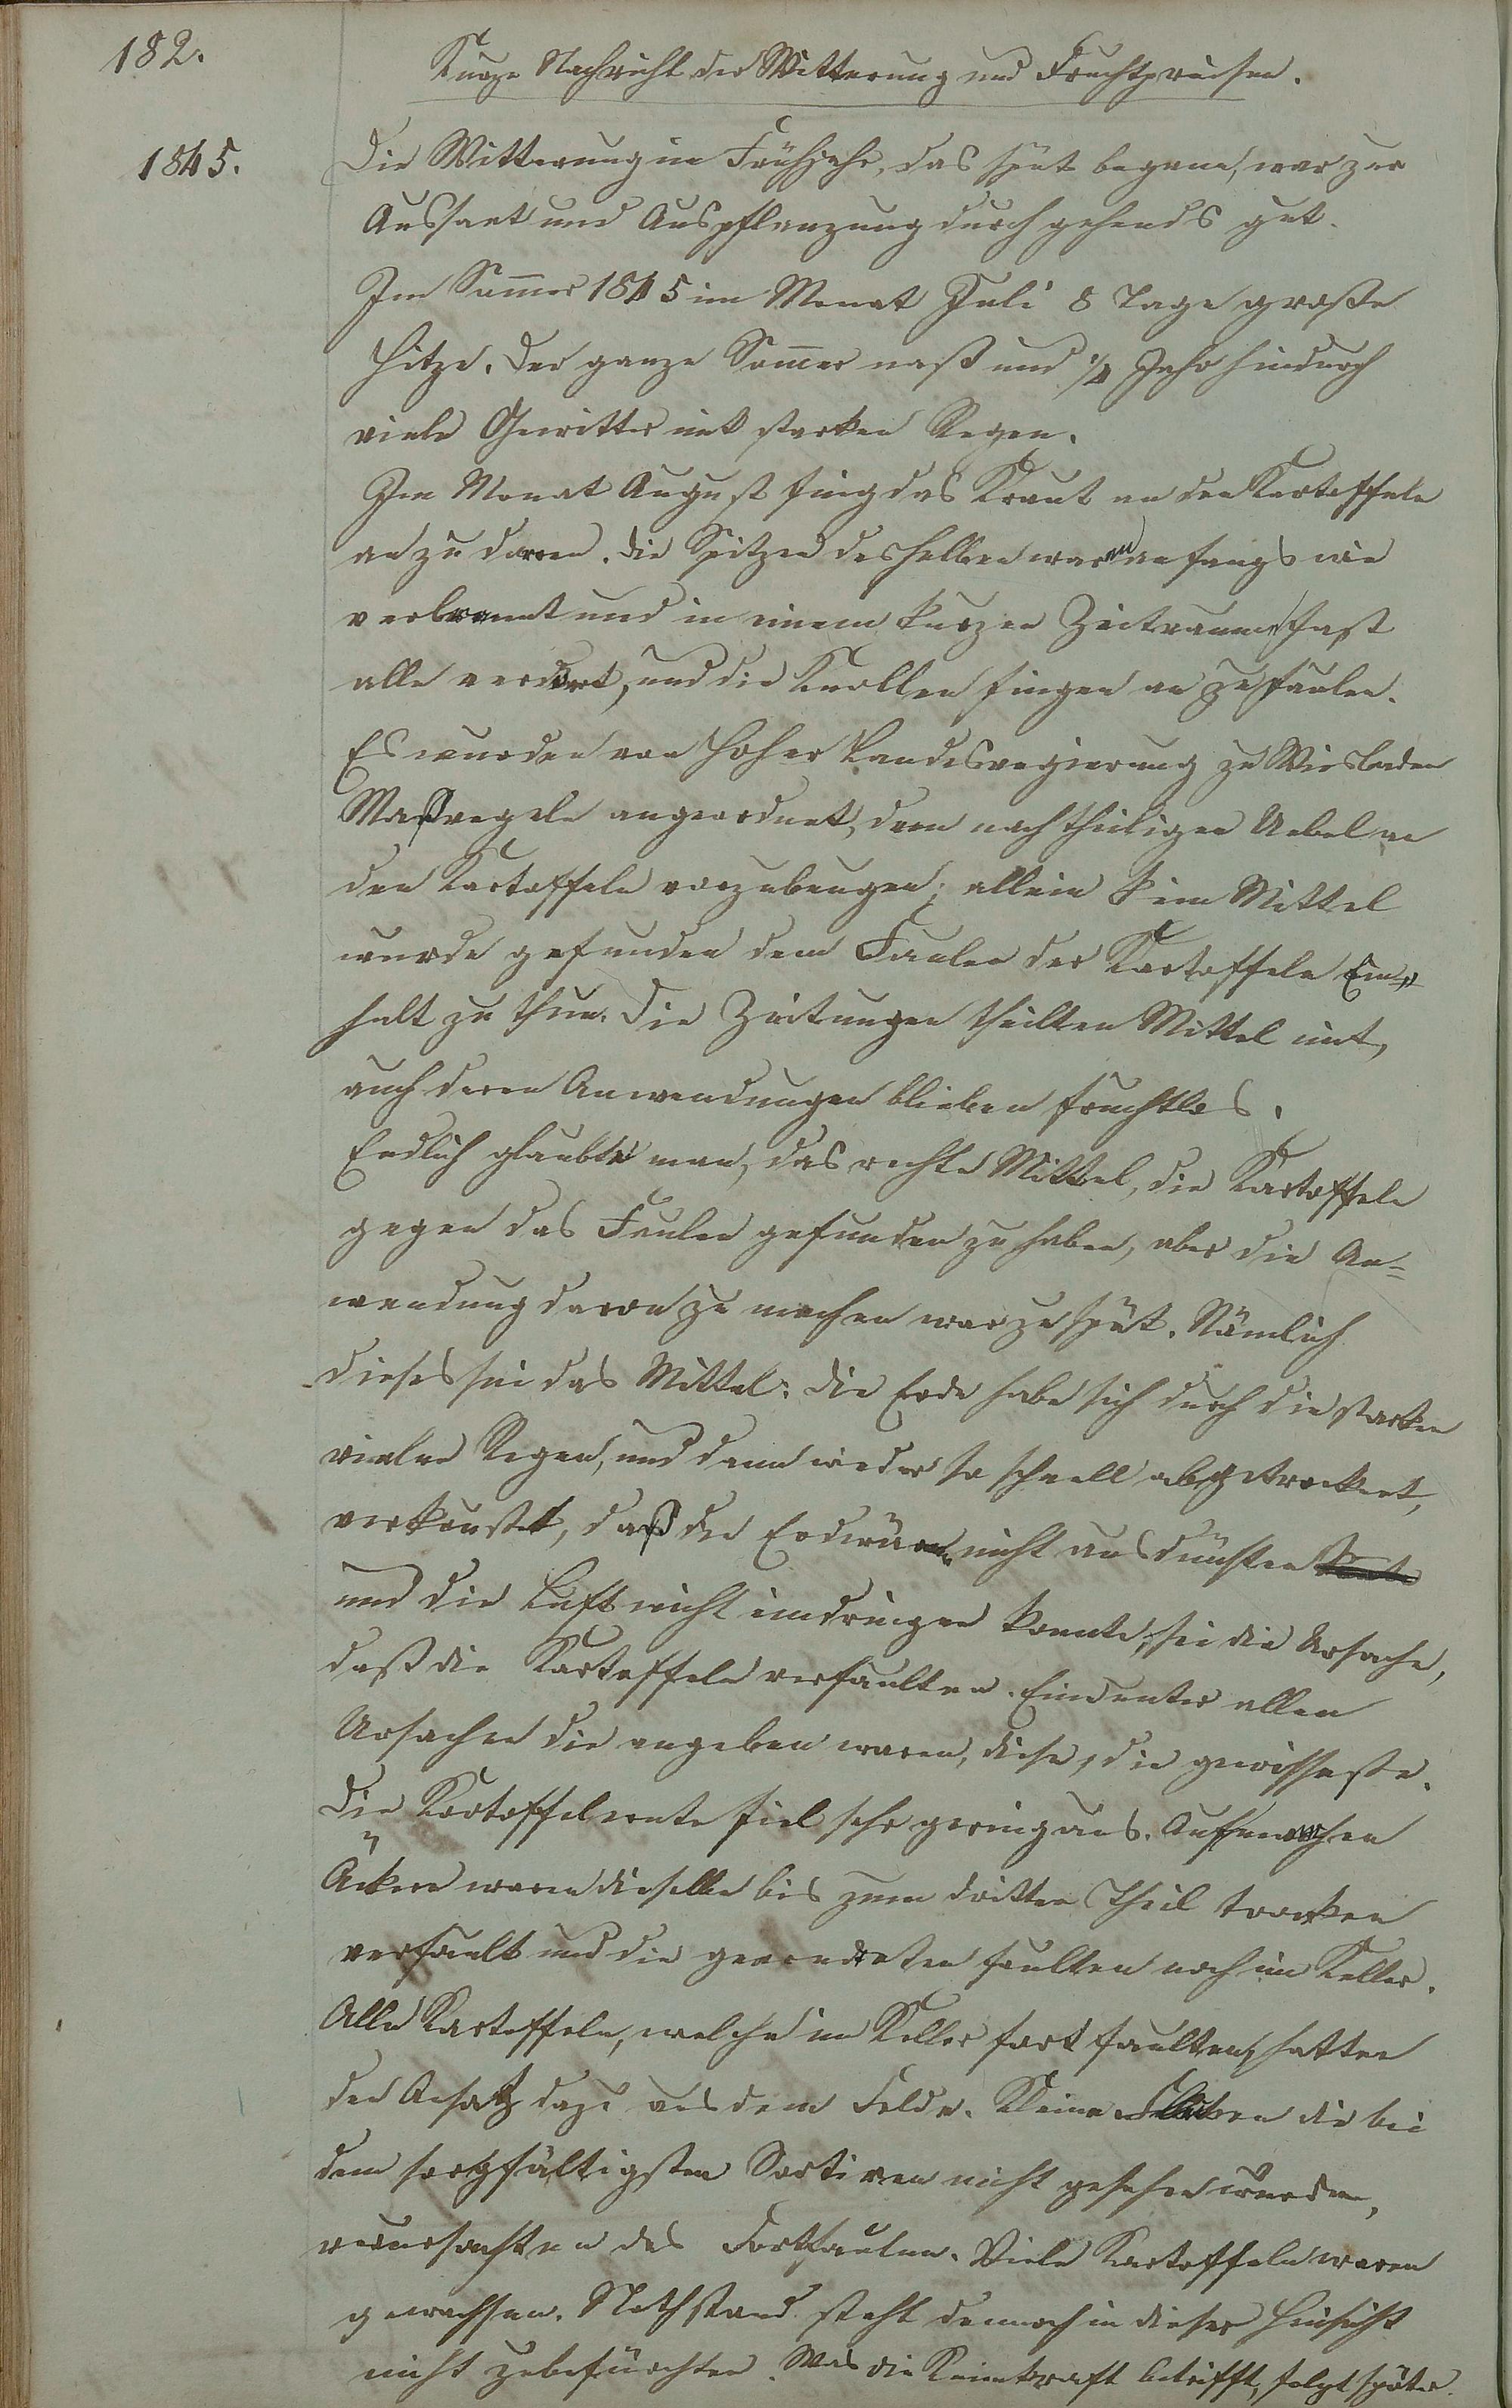 182.
Kurze Nachricht der Witterung und Fruchtpreisen.
1845.
Die Witterung im Frühjahr, das spät begann, war zur
Aussaat und Auspflanzung durchgehends gut.
Im Sommer 1845 im Monat Juli 8 Tage große
Hitze. Der ganze Sommer naß und 1/4 Jahr hindurch
viele Gewitter mit starken Regen.
Im Monat August fing das Kraut an den Kartoffeln
an zu dorren. Die Spitzen desselben waren anfangs wie
verbrannt und in einem kurzen Zeitraume fast
alle verdorrt, und die Knollen fingen an zu faulen.
Es wurden von Hoher Landesregierung zu Wiesbaden
Maßregeln angeordnet, dem nachtheiligen Uebel an
den Kartoffeln vorzubeugen; allein kein Mittel
wurde gefunden dem Faulen der Kartoffeln Ein-
halt zu thun. Die Zeitungen theilten Mittel mit,
auch deren Anwendungen blieben fruchtlos.
Endlich glaubte man, das rechte Mittel, die Kartoffeln
gegen das Faulen gefunden zu haben, aber die An=
wendung davon zu machen war zu spät. Nämlich
dieses sei das Mittel: die Erde habe sich durch die starken
vielen Regen, und dann wieder so schnell abgetrocknet,
verkrustet, daß die Erdwärme nicht ausdünsten
und die Luft nicht eindringen konnte, sei die Ursache,
daß die Kartoffeln verfaulten. Eine unter allen
Ursachen die angeben waren, diese, die gewisseste.
Die Kartoffelernte fiel sehr gering aus. Auf manchen
Äckern waren dieselben bis zum dritten Theil trocken
verfault und die geerndteten faulten noch im Keller.
Alle Kartoffeln, welche im Keller fort faulten, hatten
den Ansatz dazu aus dem Felde. Kleine die bei
dem sorgfältigsten Sortiren nicht gesehen wurden,
verursachten das Fortfaulen. Viele Kartoffeln waren
gewachsen. Nothstand steht dennoch in dieser Hinsicht
nicht zubefürchten. Was die Keimkraft betrifft, folgt später.